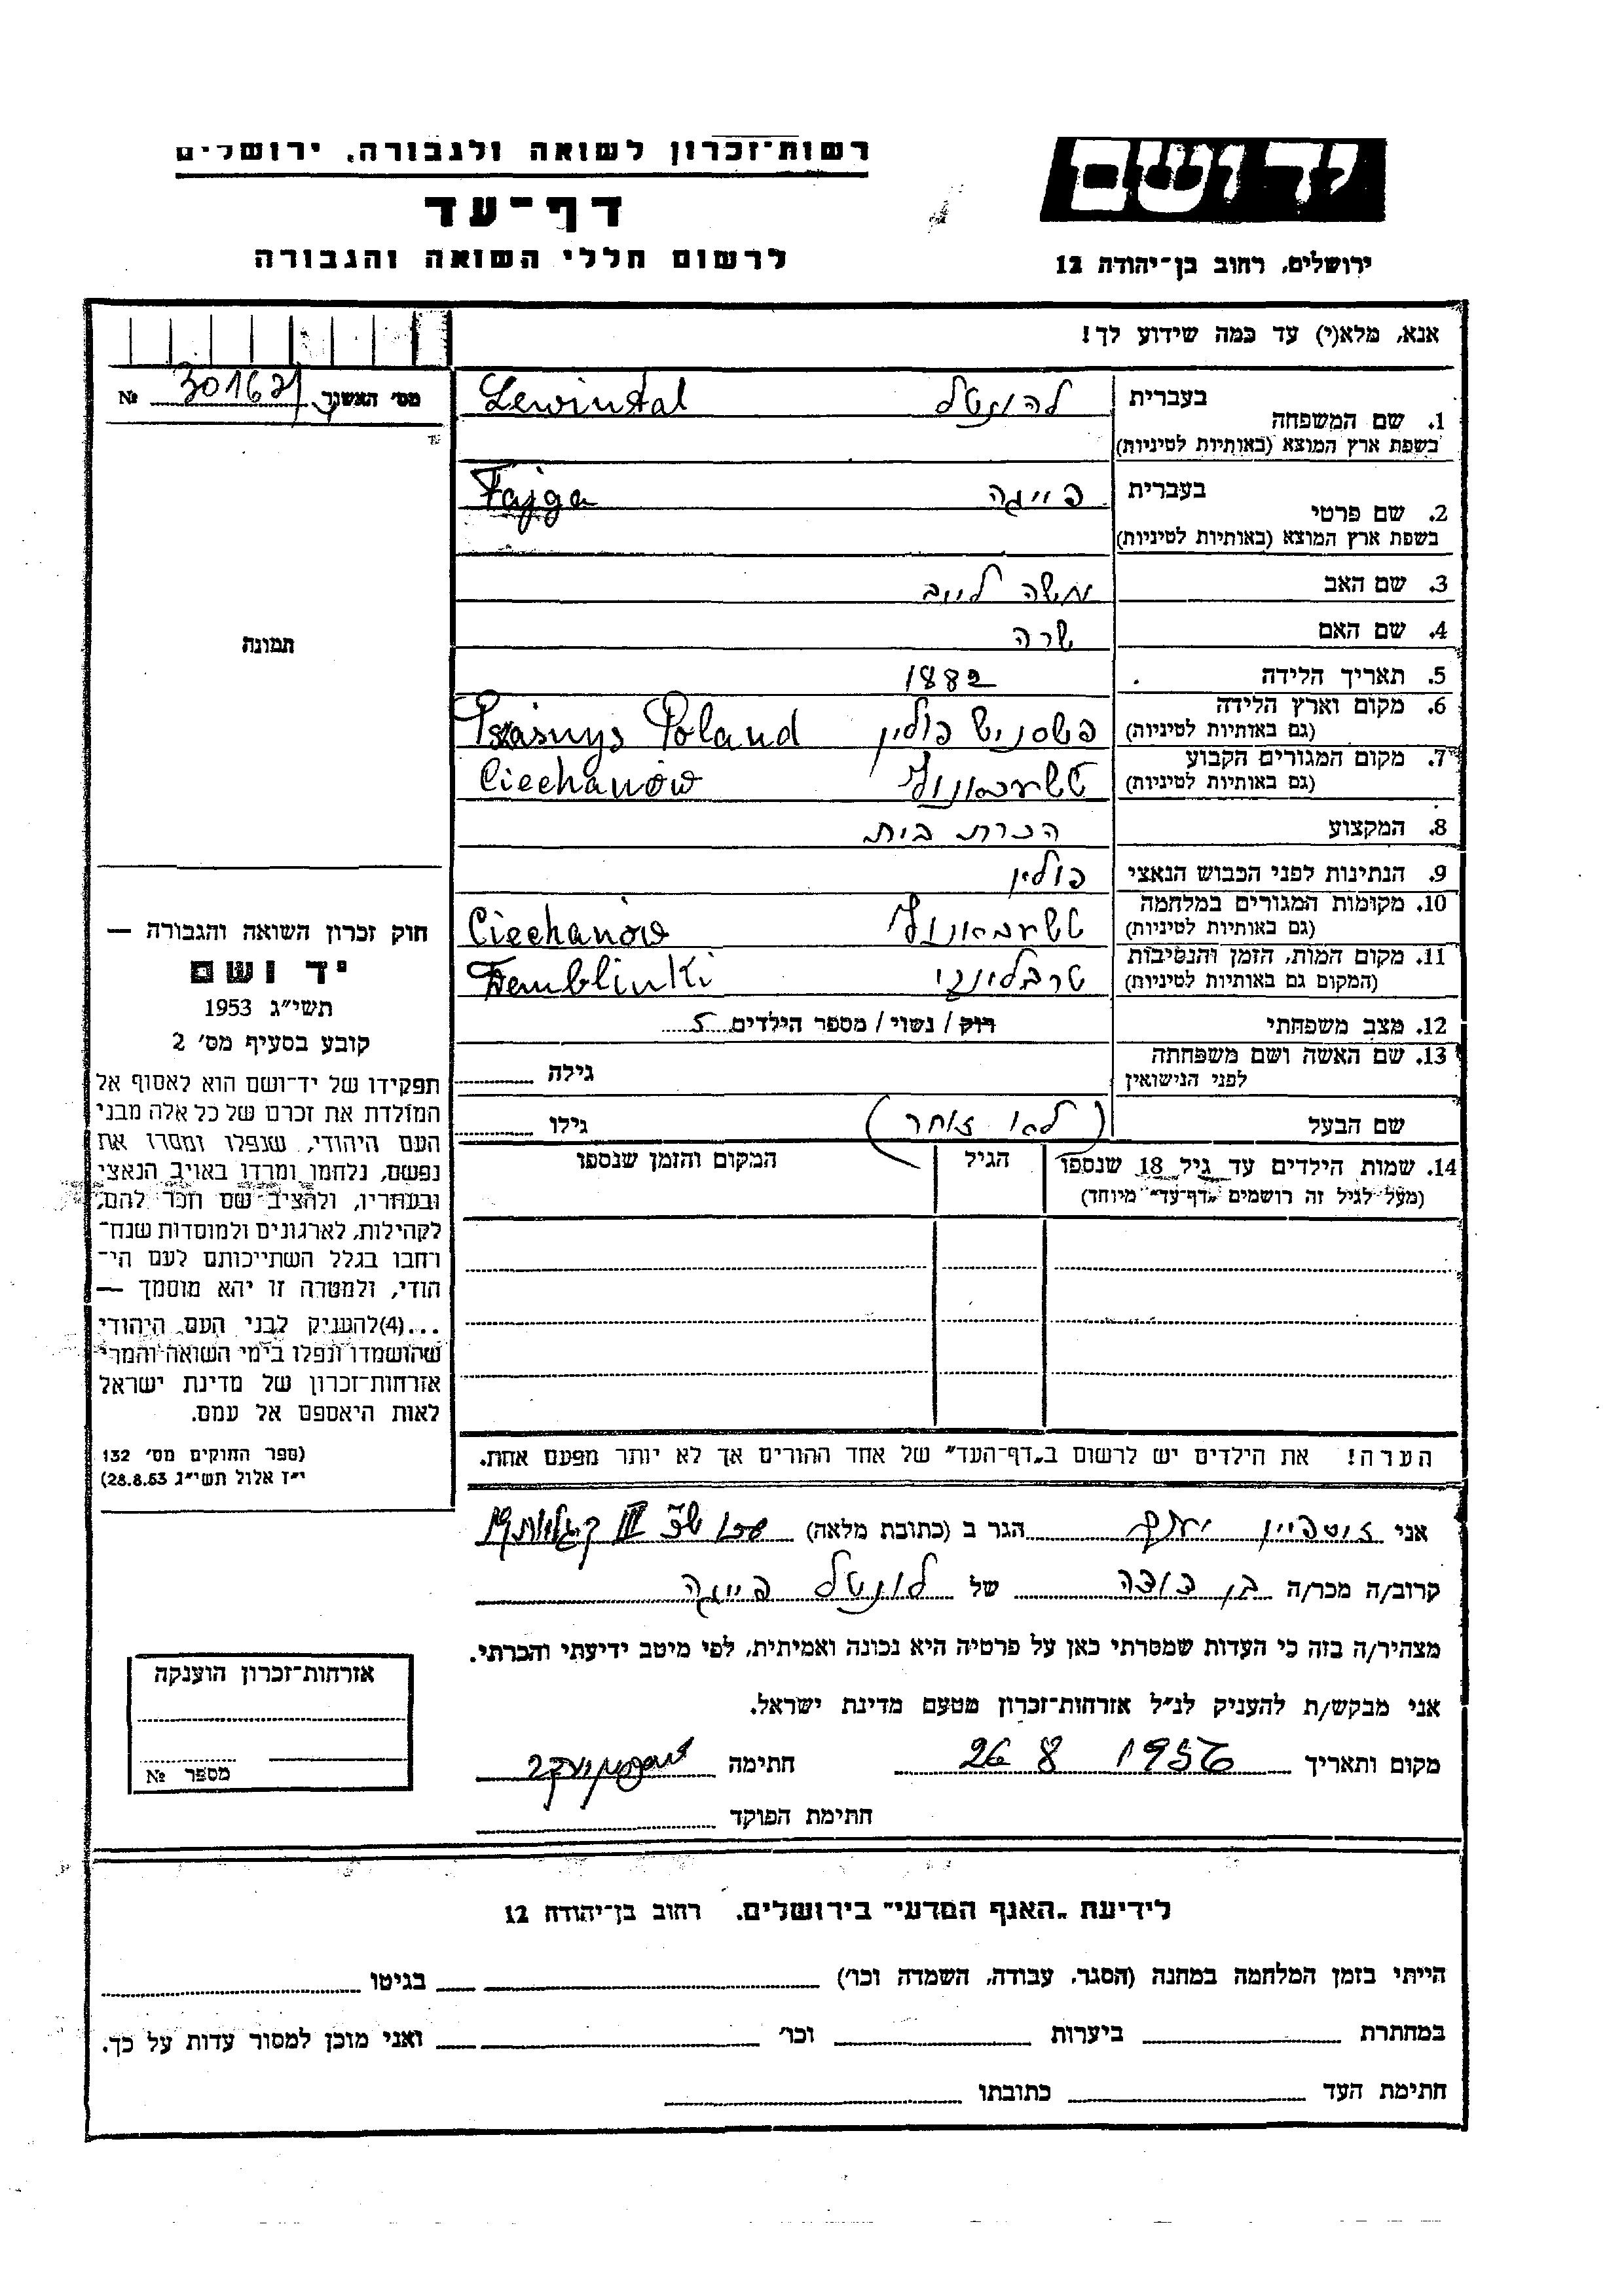 רשות־זכרון לשואה ולגבורה, ירושלים
דף־עד
לרשום חללי השואה והגבורה
ידושם
ירושלים, רחוב בן־יהודה 12
אנא, מלא(י) עד כמה שידוע לך!
מס' האשנר № 301621
1. שם המשפחה
בעברית
Lewintal
בשפת ארץ המוצא (באותיות לטיניות)
2. שם פרטי
בעברית פייגה
Fajga
בשפת ארץ המוצא (באותיות לטיניות)
3. שם האב משה לייב
4. שם האם שרה
5. תאריך הלידה 1882
6. מקום וארץ הלידה
(גם באותיות לטיניות)
פולין Poland
7. מקום המגורים הקבוע
(גם באותיות לטיניות)
Ciechanów
8. המקצוע בית
9. הנתינות לפני הכבוש הנאצי פולין
10. מקומות המגורים במלחמה
(גם באותיות לטיניות)
Ciechanów
11. מקום המות, הזמן והנסיבות
(המקום גם באותיות לטיניות)
טרבלינקי
12. מצב משפחתי רוק / נשוי / מספר הילדים 5
13. שם האשה ושם משפחתה
לפני הנישואין
גילה
שם הבעל
גילו
14. שמות הילדים עד גיל 18 שנספו
(מעל לגיל זה רושמים „דף־עד" מיוחד)
הגיל
המקום והזמן שנספו
הערה! את הילדים יש לרשום ב„דף־העד" של אחד ההורים אך לא יותר מפעם אחת.
תמונה
חוק זכרון השואה והגבורה —
יד ושם
תשי"ג 1953
קובע בסעיף מס' 2
תפקידו של יד־ושם הוא לאסוף אל
המולדת את זכרם של כל אלה מבני
העם היהודי, שנפלו ומסרו את
נפשם, נלחמו ומרדו באויב הנאצי
ובעוזריו, ולהציב שם וזכר להם,
לקהילות, לארגונים ולמוסדות שנח־
רחבו בגלל השתייכותם לעם הי־
הודי, ולמטרה זו יהא מוסמך —
...(4)להעניק לבני העם היהודי
שהושמדו ונפלו בימי השואה והמרי
אזרחות־זכרון של מדינת ישראל
לאות היאספם אל עמם.
(ספר החוקים מס' 132
י"ז אלול תשי"ג 28.8.53)
אני הגר ב (כתובת מלאה)
קרוב/ה מכר/ה בן דודה של פייגה
מצהיר/ה בזה כי העדות שמסרתי כאן על פרטיה היא נכונה ואמיתית, לפי מיטב ידיעתי והכרתי.
אני מבקש/ת להעניק לנ"ל אזרחות־זכרון מטעם מדינת ישראל.
מקום ותאריך 26 8 1956 חתימה
חתימת הפוקד
אזרחות־זכרון הוענקה
מספר №
לידיעת „האגף המדעי" בירושלים. רחוב בן־יהודה 12
הייתי בזמן המלחמה במחנה (הסגר, עבודה, השמדה וכו') בגיטו
במחתרת ביערות וכו' ואני מוכן למסור עדות על כך.
חתימת העד כתובתו